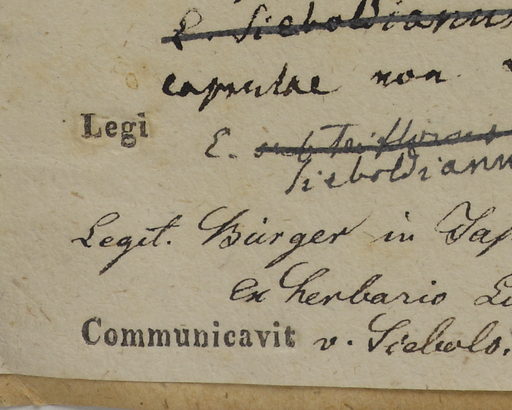 E. Sieboldianus
capsulae non
Legi
E. subtriflorus
Sieboldiann
Legit. Bürger in Jap
ex herbario
Communicavit v. Siebold.